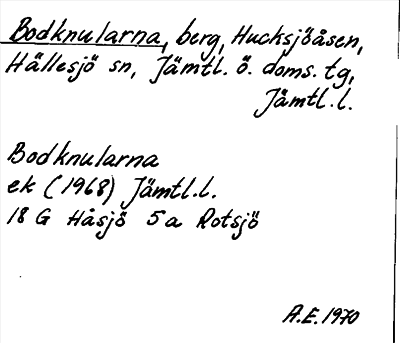 Bodknularna, berg, Hucksjöåsen,
Hällesjö sn, Jämtl. ö. doms. tg,
Jämtl. l.
Bodknularna
ek (1968) Jämtl. l.
18 G Håsjö 5a Rotsjö
A.E. 1970